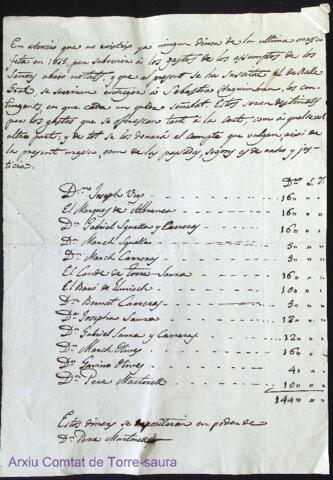 En atencio que no existeix ya ningun diner de la ultima massa
feta en 1818, per subvenir à los gastos de assumptos de los
Señors abaix notats, y que al present se ha suscitat el de Balle
Gral, se serviran entregar à Sebastia Chaquimban, los con
tingents, en que cada un queda señalat. Estos seran destinats
per los gastos que se per tant à la cort, com à qualsevol
altre punt, y de tot se los donará el compte que vulgan, axi de
la present massa, com de las pasadas, segons es de raho y jus
ticia.
Ds. L. S.
Dn. Joseph Vigo - - - - 16 " "
El Marques de Albranca - - - - 16 " "
Dn. Gabriel Squella y Carreras - - - - 16 " "
Dn. March Squella - - - - 5 " "
Dn. March Carreras - - - - 5 " "
El Conde de Torre Saura - - - - 16 " "
El Baró de Lluriach - - - - 10 " "
Dn. Bernat Carreras - - - - 5 " "
Da. Josepha Saura - - - - 13 " "
Dn. Gabriel Saura y Carreras - - - - 12 " "
Dn. March Olives - - - - 16 " "
Dn. Gavino Olives - - - - 4 " "
Dn. Pere Martorell - - - - 10 " "
144 " "
Estos diners se depositaran en poder de
Dn. Pere Martorell
Arxiu Comtat de Torre-saura